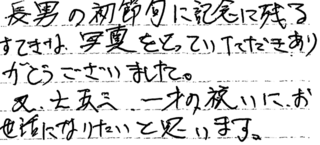 長男の初節句に記念に残る
すてきな写真をとっていただきあり
がとうございました。
又、七五三、一才の祝いに、お
世話になりたいと思います。